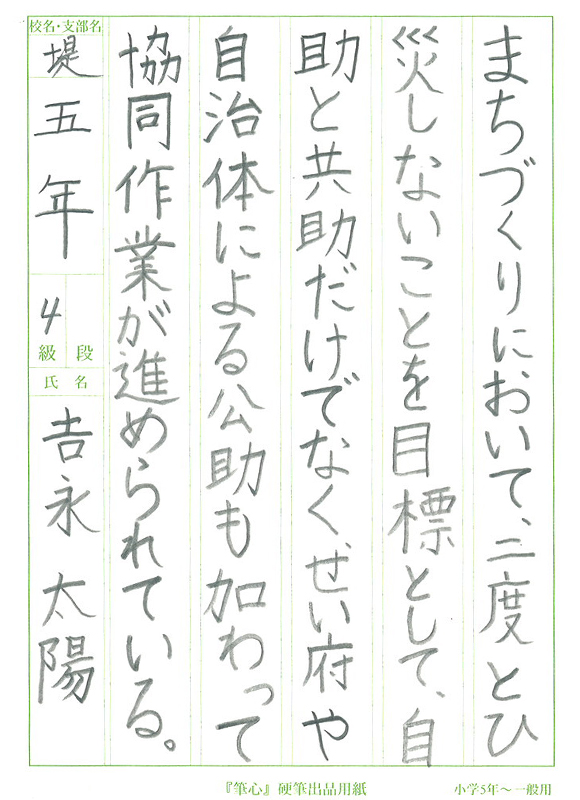 まちづくりにおいて、二度とひ
災しないことを目標として、自
助と共助だけでなく、せい府や
自治体による公助も加わって
協同作業が進められている。
校名・支部名
堤五年
4級 段
氏名
吉永太陽
『筆心』硬筆出品用紙
小学5年～一般用